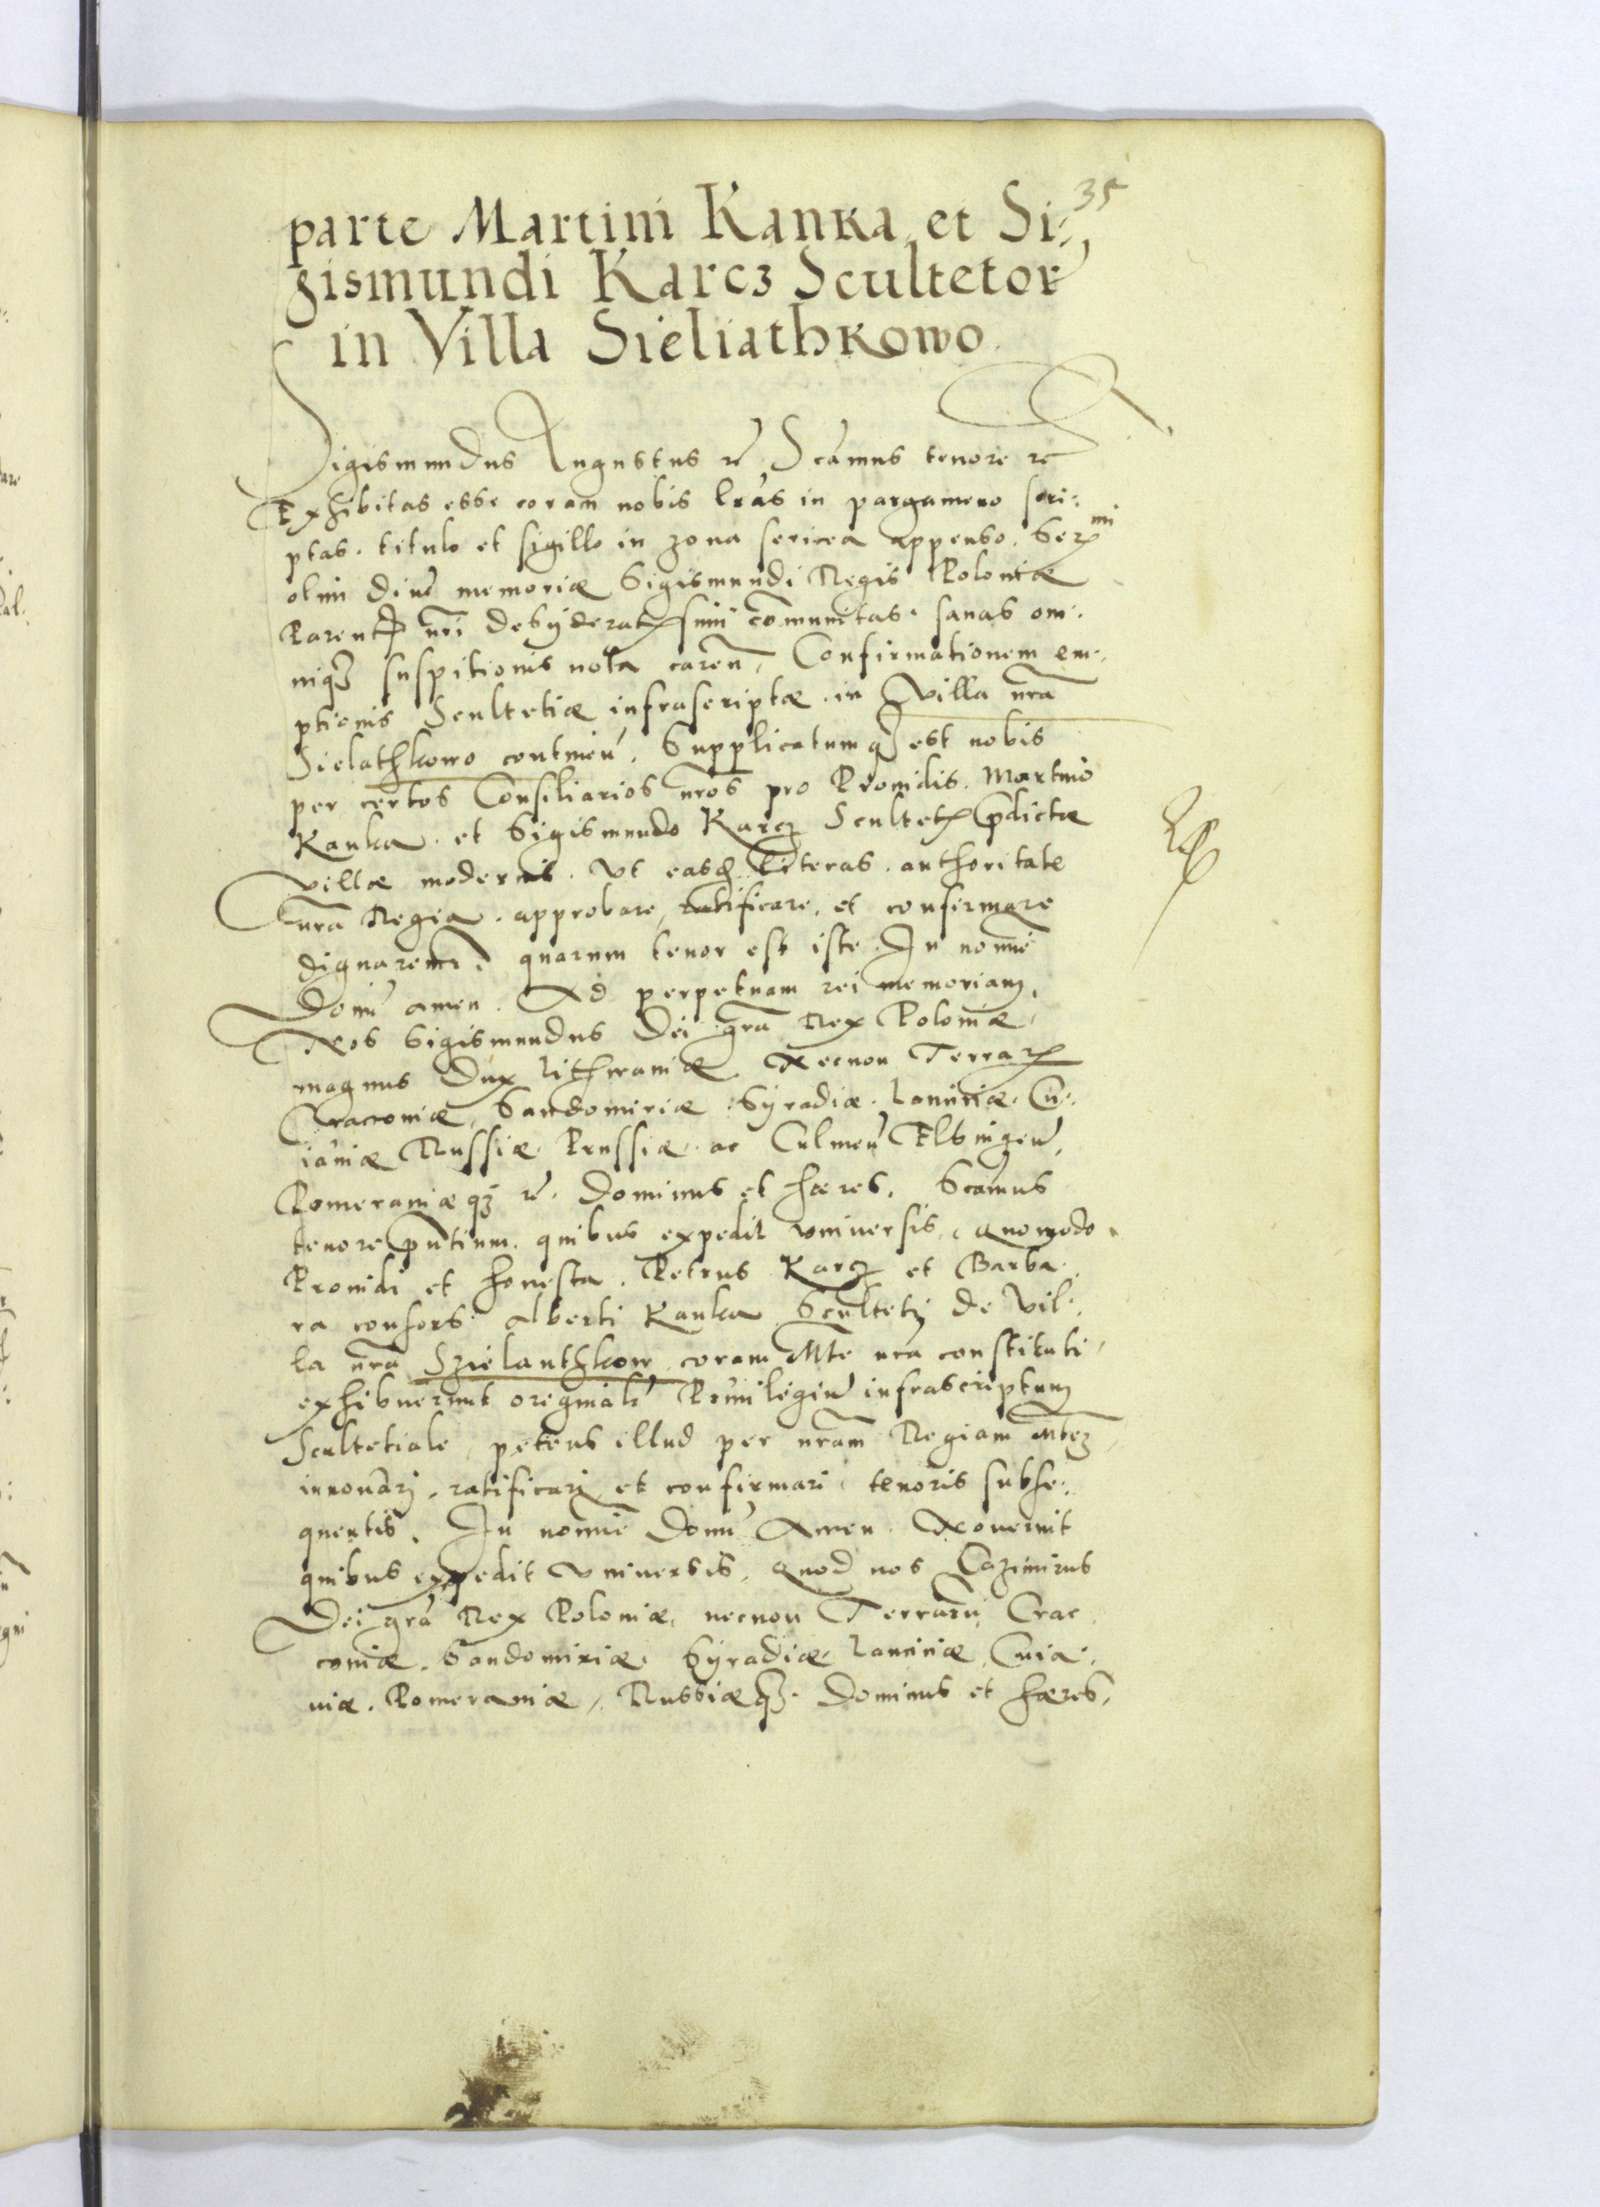 35
parte Martini Kanka et Si-
gismundi Karcz Scultetor
in Villa Sieliathkowo
Sigismundus Augustus rc Scamus tenore rc
Exhibitas esse coram nobis lras in pargameno scri-
ptas. titulo et sigillo in zona sericea appenso. Ser mi
olim diue memoriæ Sigismundi Regis Poloniæ
Parentis nri desyderatissimi comunitas. sanas om-
niq3 suspitionis nota caren, Confirmationem em-
ptionis Scultetiæ infrascriptæ in villa nra
Sielathkowo continen. Supplicatumq3 est nobis
per certos Consiliarios nros pro Prouidis. Martino
Kanka. et Sigismundo Karcz Scultetis pdictæ
villæ modernis. Vt easd literas. authoritate
nra Regia. approbare, ratificare. et confirmare
dignaremur. quarum tenor est iste. In nomine
Domi amen. Ad perpetuam rei memoriam.
Nos Sigismundus Dei gra Rex Poloniæ,
magnus Dux Lithwaniæ Necnon Terrar
Cracouiæ, Sandomiriæ. Syradiæ. Lanciciæ. Cu-
iauiæ Russiæ. Prussiæ. ac Culmen Elbingen,
Pomeraniæq3 rc. Dominus et hæres. Scamus
tenore pntium. quibus expedit vniuersis, quomodo
Prouidi et honesta. Petrus Karcz et Barba-
ra consors Alberti Kanka Sculteti de vil-
la nra Szielanthkow coram Mte nra constituti,
exhibuerunt originale Priuilegiu infrascriptum
Scultetiale, petens illud per nram Regiam Mtem,
innouari. ratificari et confirmari tenoris subse-
quentis. In nomine Domi Amen. Nouerint
quibus expedit vniuersis, quod nos Cazimirus
Dei gra Rex Poloniæ, necnon Terraru Crac
couiæ. Sandomiriæ. Syradiæ. Lanciciæ, Cuia-
uiæ. Pomeraniæ, Russiæq3. Dominus et hæres,